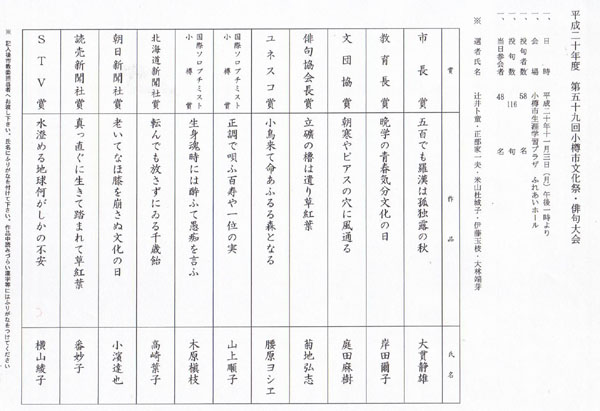 平成二十年度 第五十九回小樽市文化祭・俳句大会
一、日時 平成二十年十一月三日(月)午後一時より
一、会場 小樽市生涯学習プラザ ふれあいホール
一、投句者数 58名
一、投句数 116句
一、当日参会者 48名
※ 選者氏名 辻井卜童・正部家一夫・米山杜城子・伊藤玉枝・大林端芽
賞 作品 氏名
市長賞 五百でも羅漢は孤独露の秋 大貫静雄
教育長賞 晩学の青春気分文化の日 岸田爾子
文団協賞 朝寒やピアスの穴に風通る 庭田麻樹
俳句協会長賞 立礦の櫓は遺り草紅葉 菊地弘志
ユネスコ賞 小鳥来て命あふるる森となる 腰原ヨシエ
国際ソロプチミスト小樽賞 正調で唄ふ百寿や一位の実 山上順子
国際ソロプチミスト小樽賞 生身魂時には酔ふて愚痴を言ふ 木原槇枝
北海道新聞社賞 転んでも放さずにゐる千歳飴 高崎葉子
朝日新聞社賞 老いてなほ膝を崩さぬ文化の日 小濱達也
読売新聞社賞 真っ直ぐに生きて踏まれて草紅葉 番妙子
STV賞 水澄める地球何がしかの不安 横山綾子
※ 記入後市教委担当者へお渡し下さい。氏名にふりがなを付けて下さい。作品中読みづらい漢字等にはふりがなをつけてください